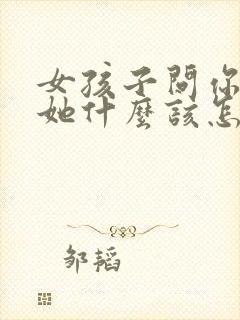 女孩子問你
她什麼該怎
邹韬